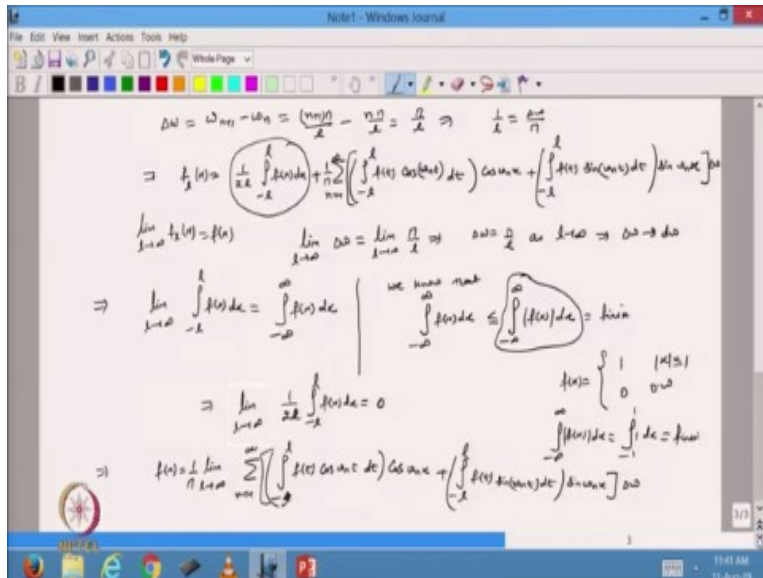 Note1 - Windows Journal
File Edit View Insert Actions Tools Help
Whole Page
B I
Δω = ω_{n+1} - ω_n = (n+1)π/l - nπ/l = π/l ⇒ 1/l = Δω/π
⇒ f_l(x) = 1/2l ∫_{-l}^{l} f(x)dx + 1/π ∑_{n=1}^{∞} [(∫_{-l}^{l} f(t) cos(ω_n t) dt) cos ω_n x + (∫_{-l}^{l} f(t) sin(ω_n t) dt) sin ω_n x] Δω
lim_{l→∞} f_l(x) = f(x) lim_{l→∞} Δω = lim_{l→∞} π/l ⇒ Δω = π/l as l→∞ ⇒ Δω → dω
⇒ lim_{l→∞} ∫_{-l}^{l} f(x)dx = ∫_{-∞}^{∞} f(x)dx
we know that
∫_{-∞}^{∞} f(x)dx ≤ ∫_{-∞}^{∞} |f(x)|dx = finite
⇒ lim_{l→∞} 1/2l ∫_{-l}^{l} f(x)dx = 0
f(x) = { 1 |x|≤1
0 o.w
∫_{-∞}^{∞} |f(x)|dx = ∫_{-1}^{1} 1 dx = finite
⇒ f(x) = 1/π lim_{l→∞} ∑_{n=1}^{∞} [(∫_{-l}^{l} f(t) cos ω_n t dt) cos ω_n x + (∫_{-l}^{l} f(t) sin(ω_n t) dt) sin ω_n x] Δω
NPTEL
3/3
3
11:41 AM